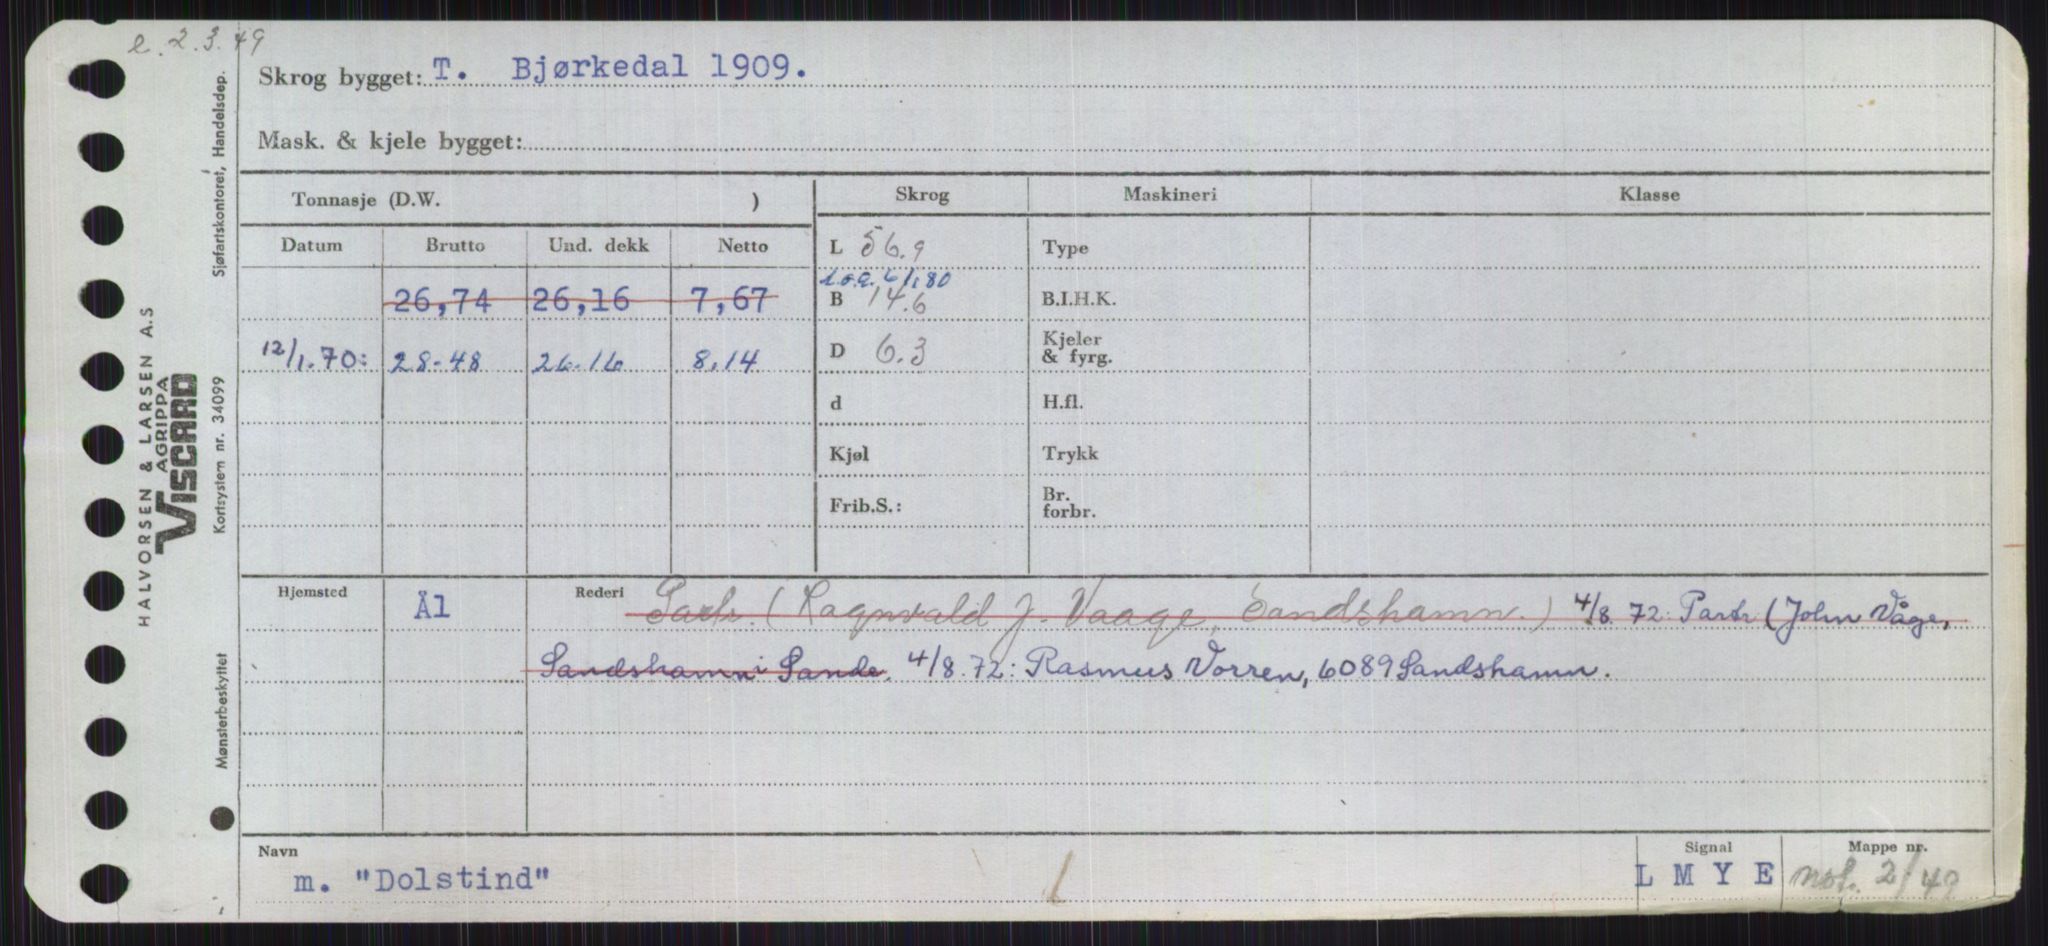 e. 2.3.49
Skrog bygget: T. Bjørkedal 1909.
Mask. & kjele bygget:
Tonnasje (D.W. )
Skrog
Maskineri
Klasse
Datum Brutto Und. dekk Netto
L 56.9
Type
l.o.a. 61,80
26,74 26,16 7,67
B 14.6
B.I.H.K.
12/1.70: 28-48 26.16 8,14
D 6.3
Kjeler
& fyrg.
d
H.fl.
Kjøl
Trykk
Frib.S.:
Br.
forbr.
Hjemsted Ål
Rederi Partr. (Ragnvald J. Vaage, Sandshamn.) 4/8.72: Partr (John Våge,
Sandshamn i Sande. 4/8.72: Rasmus Vorren, 6089 Sandshamn.
Navn
m. "Dolstind"
Signal
L M Y E
Mappe nr.
not. 2/49
HALVORSEN & LARSEN A.S
AGRIPPA
VISCARD
Mønsterbeskyttet Kortsystem nr. 34099 Sjøfartskontoret, Handelsdep.